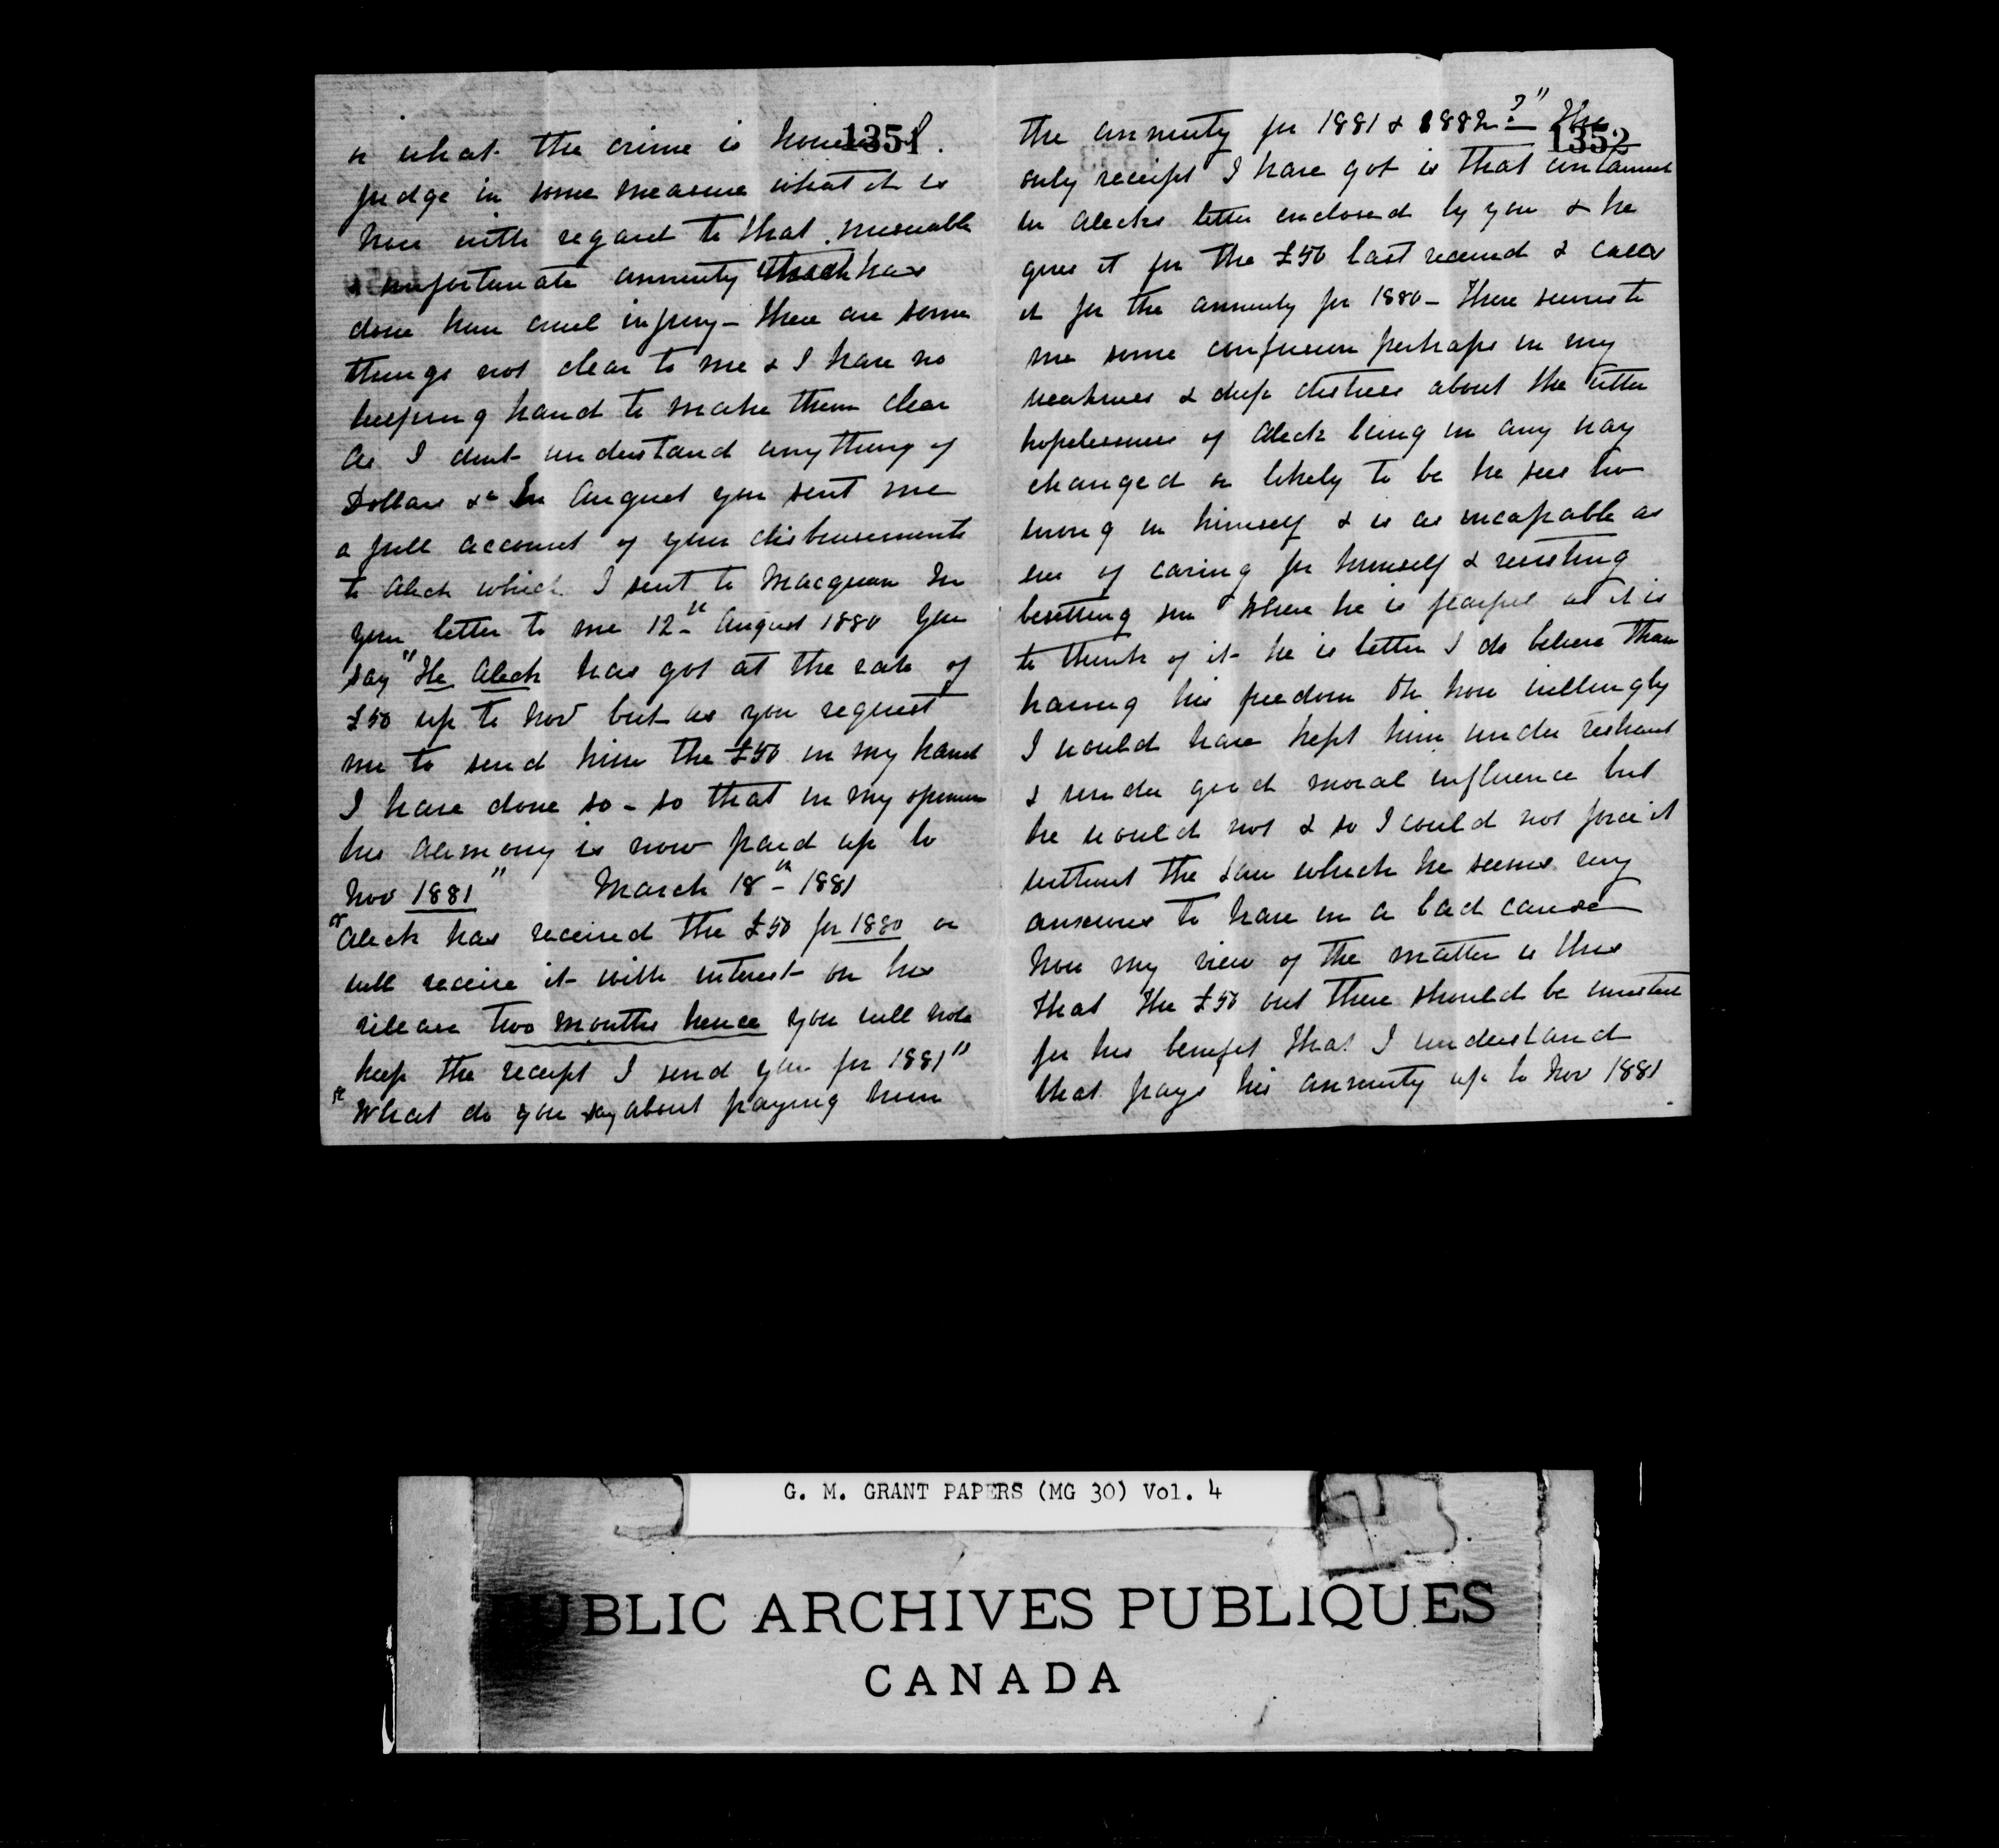 1351
or what the crime is
judge in some measure what it is
Now with regard to that miserable
& unfortunate annuity which has
done him cruel injury - there are some
things not clear to me & I have no
helping hand to make them clear
as I dont understand anything of
Dollars &c In August you sent me
a full account of your disbursements
to Aleck which I sent to Macquean In
your letter to me 12th August 1880 you
say "He Aleck has got at the rate of
£50 up to Nov but as you request
me to send him the £50 in my hand
I have done so - so that in my opinion
his alimony is now paid up to
Nov 1881" March 18th 1881
"Aleck has received the £50 for 1880 or
will receive it with interest on his
release two months hence you will note
keep the receipt I send you for 1881"
"What do you say about paying him
1352
the annuity for 1881 & 1882?" The
only receipt I have got is that contained
in Alecks letter enclosed by you & he
gives it for the £50 last received & calls
it for the annuity for 1880 - There seems to
me some confusion perhaps in my
weakness & deep distress about the utter
hopelessness of Aleck being in any way
changed or likely to be he sees no
wrong in himself & is as incapable as
ever of caring for himself & resisting
besetting sin Where he is fearful as it is
to think of it - he is better I do believe than
having his freedom Oh how willingly
I would have kept him under restraint
& under good moral influence but
he would not & so I could not force it
without the law which he seems very
anxious to have in a bad cause
Now my view of the matter is this
that the £50 out there should be invested
for his benefit that I understand
that pays his annuity up to Nov 1881
G. M. GRANT PAPERS (MG 30) Vol. 4
PUBLIC ARCHIVES PUBLIQUES
CANADA